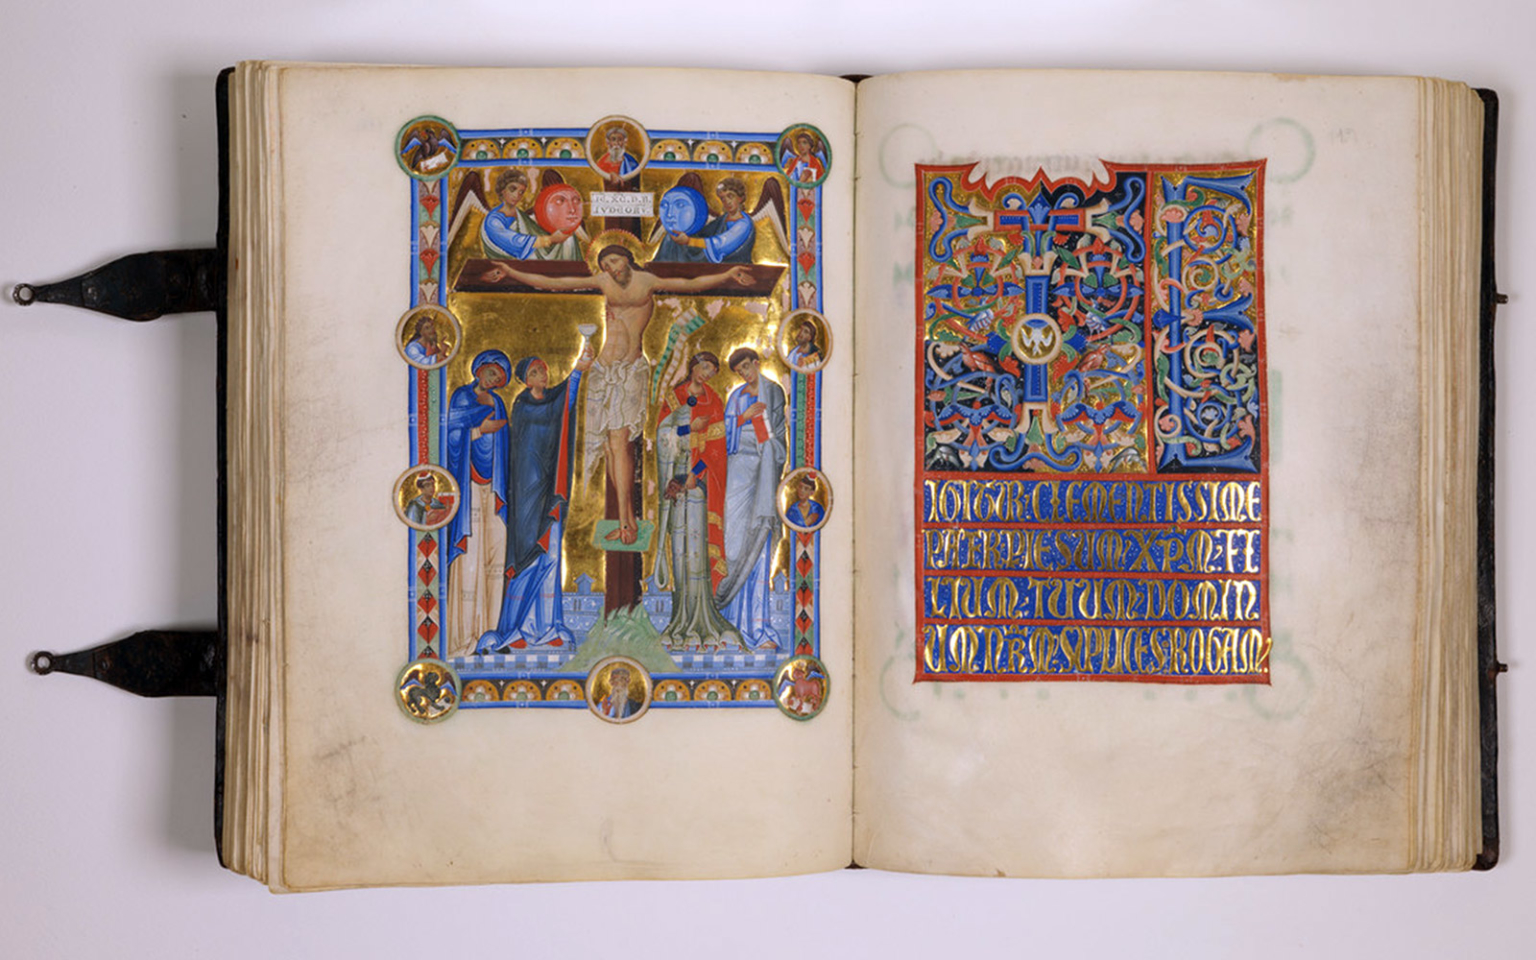 IVDEOR
TE
IGITUR CLEMENTISSIME
PATER P IESUM XPM FI
LIUM TUUM DOMIN
UM NRM SUPLICES ROGAM